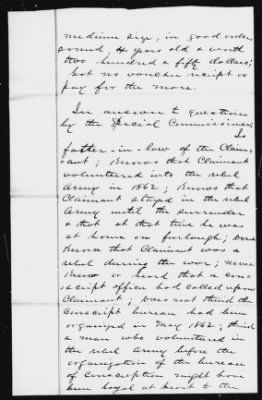 medium size, in good order,
sound, 4 years old & worth
two hundred & fifty dollars;
Got no voucher receipt or
pay for the mare.
In answer to questions
by the Special Commissioner,
Is
father-in-law of the Claim-
ant; Knows that Claimant
volunteered into the rebel
Army in 1862; Knows that
Claimant stayed in the rebel
Army until the surrender
& that at that time he was
at home on furlough; Dont
Know that Claimant was a
rebel during the war; never
Knew or heard that a con-
script officer had called upon
Claimant; Does not think the
Conscript bureau had been
organized in May 1862; think
a man who volunteered in
the rebel Army before the
organization of the bureau
of Conscription might have
been loyal at heart to the